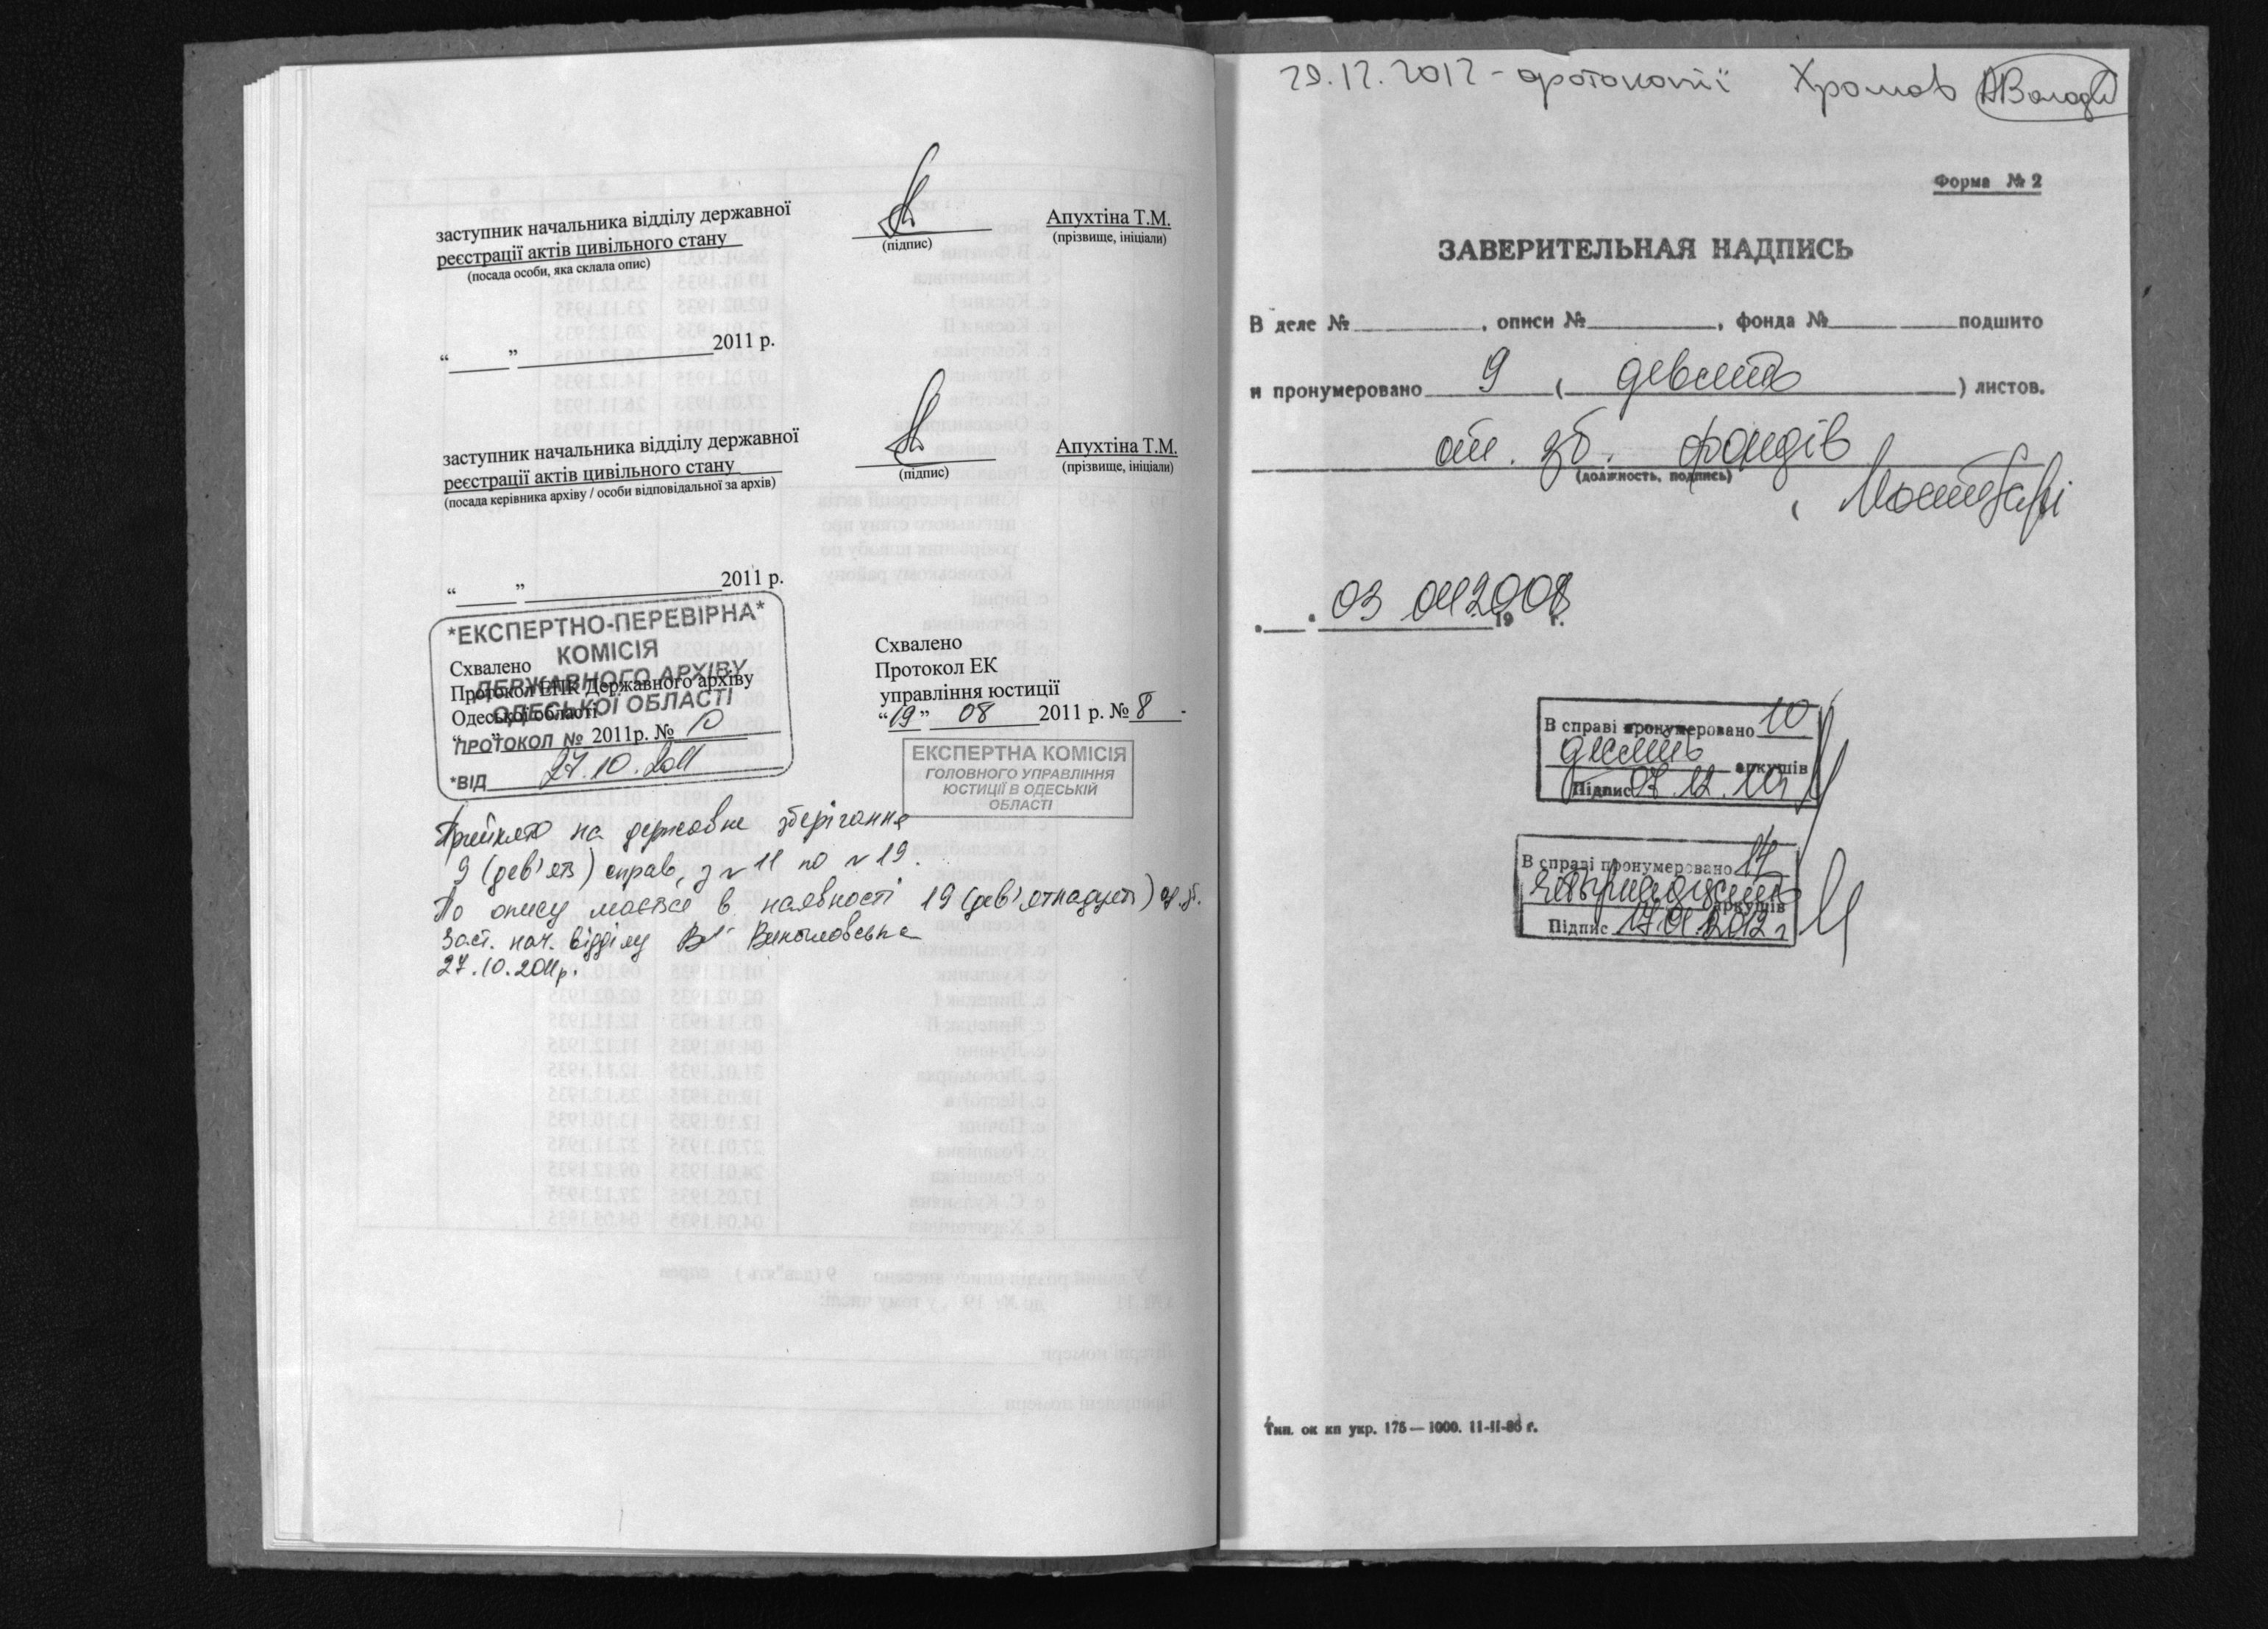 заступник начальника відділу державної
реєстрації актів цивільного стану
(посада особи, яка склала опис)
(підпис)
Апухтіна Т.М.
(прізвище, ініціали)
“ ” 2011 р.
заступник начальника відділу державної
реєстрації актів цивільного стану
(посада керівника архіву / особи відповідальної за архів)
(підпис)
Апухтіна Т.М.
(прізвище, ініціали)
“ ” 2011 р.
*ЕКСПЕРТНО-ПЕРЕВІРНА*
КОМІСІЯ
ДЕРЖАВНОГО АРХІВУ
ОДЕСЬКОЇ ОБЛАСТІ
ПРОТОКОЛ № 10
*ВІД 27.10.2011
Схвалено
Протокол ЕПК Державного архіву
Одеської області
“ ” 2011р. №
Схвалено
Протокол ЕК
управління юстиції
“19” 08 2011 р. № 8
ЕКСПЕРТНА КОМІСІЯ
ГОЛОВНОГО УПРАВЛІННЯ
ЮСТИЦІЇ В ОДЕСЬКІЙ
ОБЛАСТІ
Прийнято на державне зберігання
9 (дев'ять) справ, з № 11 по № 19.
По опису мається в наявності 19 (дев'ятнадцять) од.зб.
Заст. нач. відділу
27.10.2011р.
29.12.2012 - фотокопії Хромов
Форма № 2
ЗАВЕРИТЕЛЬНАЯ НАДПИСЬ
В деле № , описи № , фонда № подшито
и пронумеровано 9 ( девять ) листов.
зб. фондів
(должность, подпись)
03 04 2008
19 г.
В справі пронумеровано 10
десять аркушів
Підпис 07.12.10
В справі пронумеровано 14
аркушів
Підпис 17.01.2012 г
Тип. ок кп укр. 175 — 1000. 11-II-86 г.